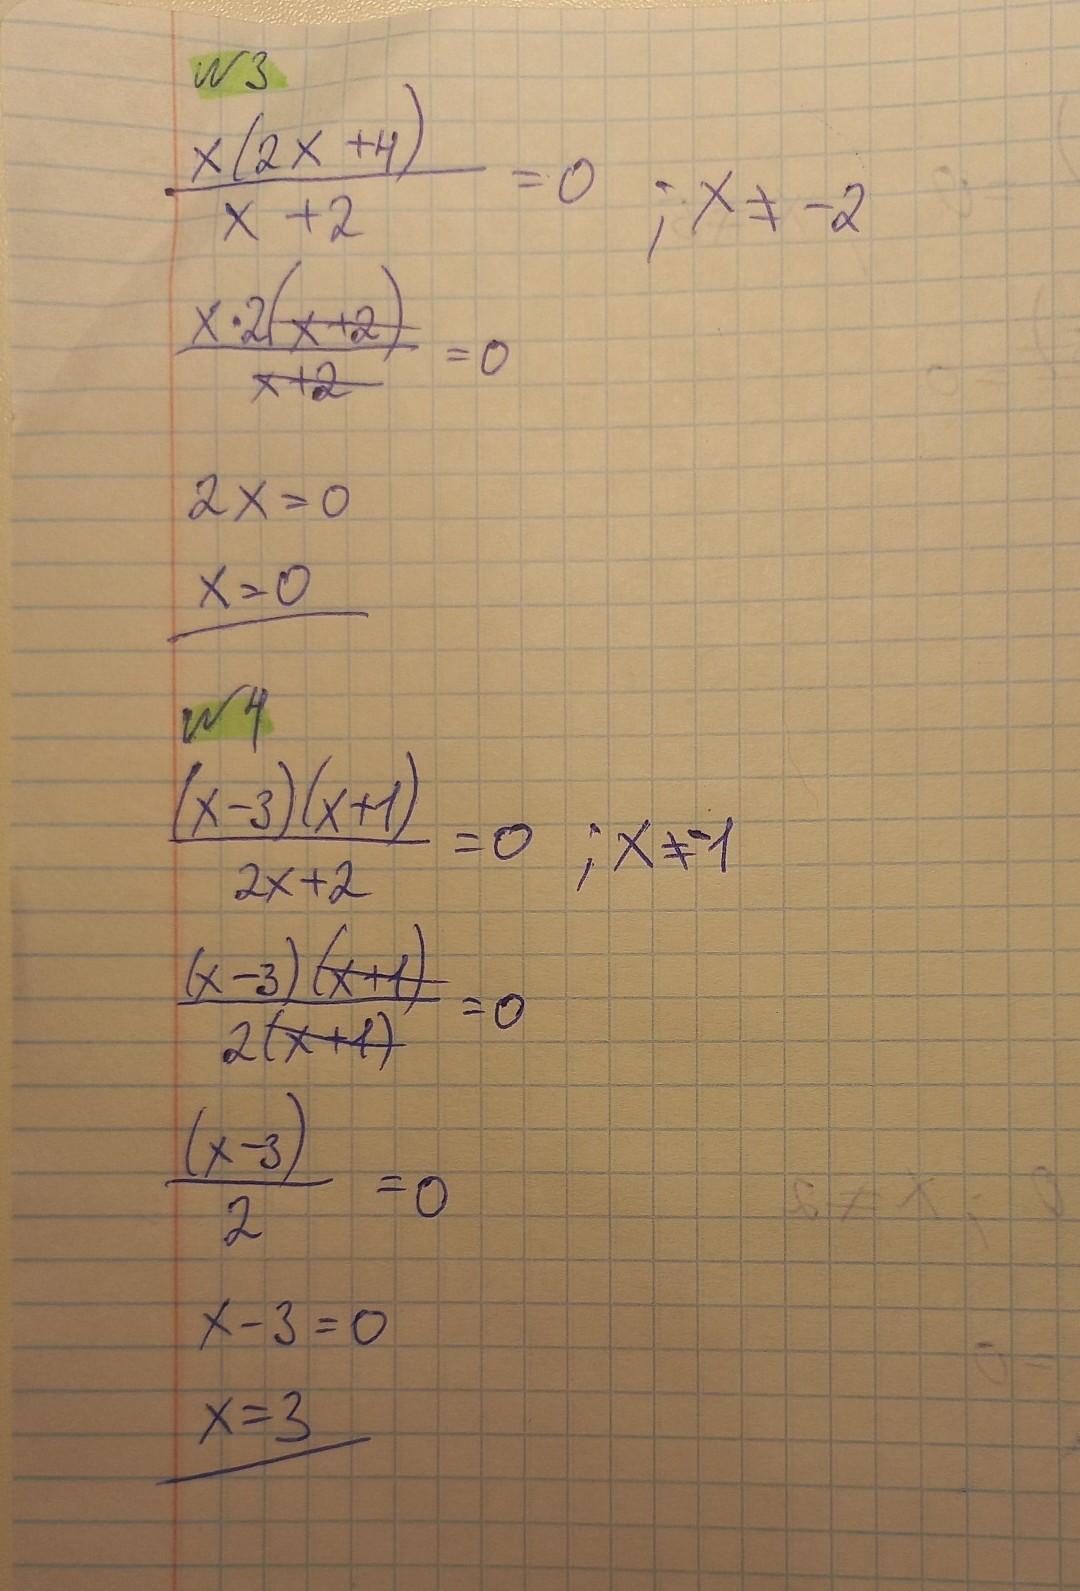 №3
x(2x+4)/x+2 = 0 ; x ≠ -2
x·2(x+2)/x+2 = 0
2x = 0
x = 0
№4
(x-3)(x+1)/2x+2 = 0 ; x ≠ -1
(x-3)(x+1)/2(x+1) = 0
(x-3)/2 = 0
x-3 = 0
x = 3